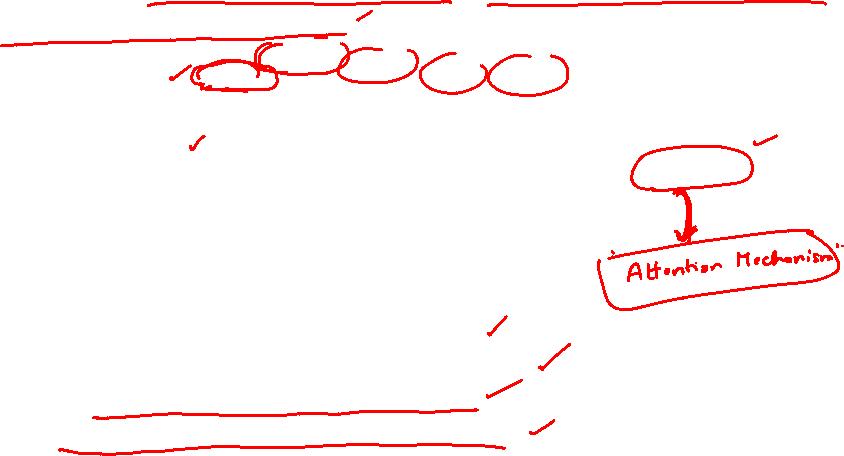 "Attention Mechanism"